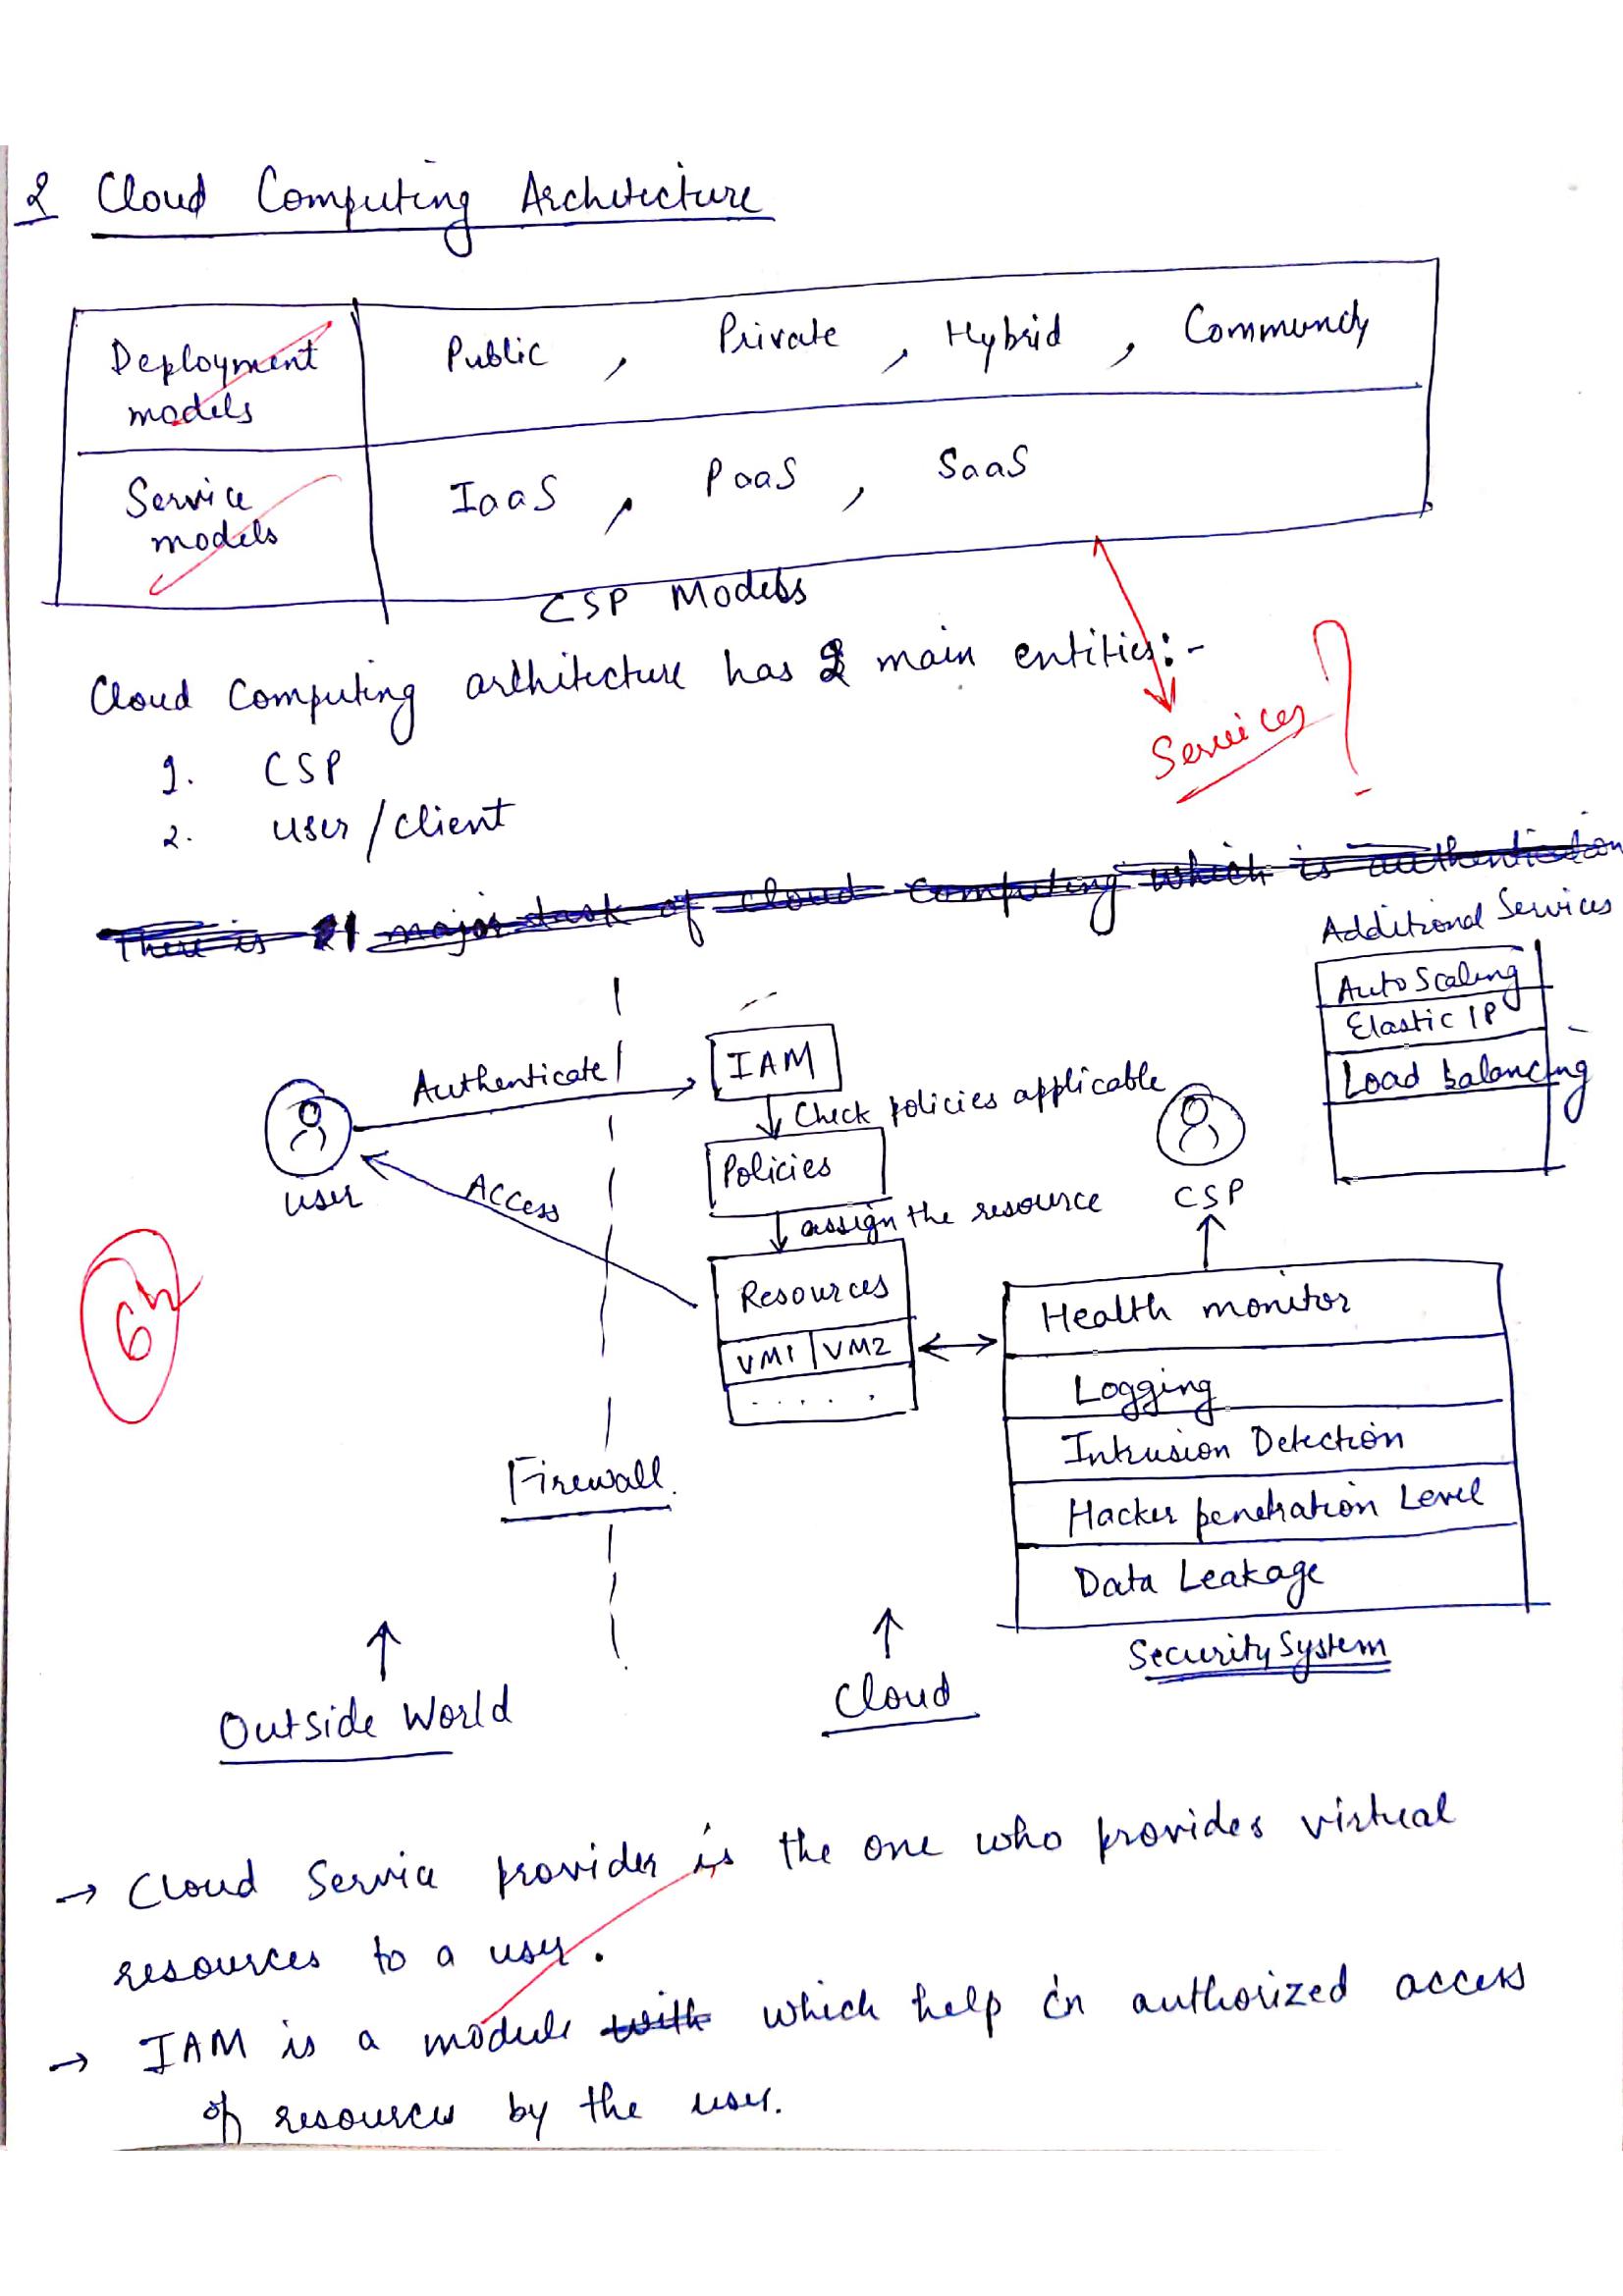 2 Cloud Computing Architecture
Deployment models
Public , Private , Hybrid , Community
Service models
IaaS , PaaS , SaaS
CSP Models
Cloud Computing architecture has 2 main entities:-
Services ?
1. CSP
2. user/client
There is 1 major task of cloud computing which is authentication
Additional Services
Auto Scaling
Elastic IP
Load balancing
Authenticate
IAM
Check policies applicable
Policies
user
Access
CSP
assign the resource
Resources
VM1 | VM2
. . . . .
Health monitor
Logging
Intrusion Detection
Hacker penetration Level
Data Leakage
Security System
6
Firewall.
Outside World
Cloud
→ Cloud Service provider is the one who provides virtual
resources to a user.
→ IAM is a module with which help in authorized access
of resources by the user.